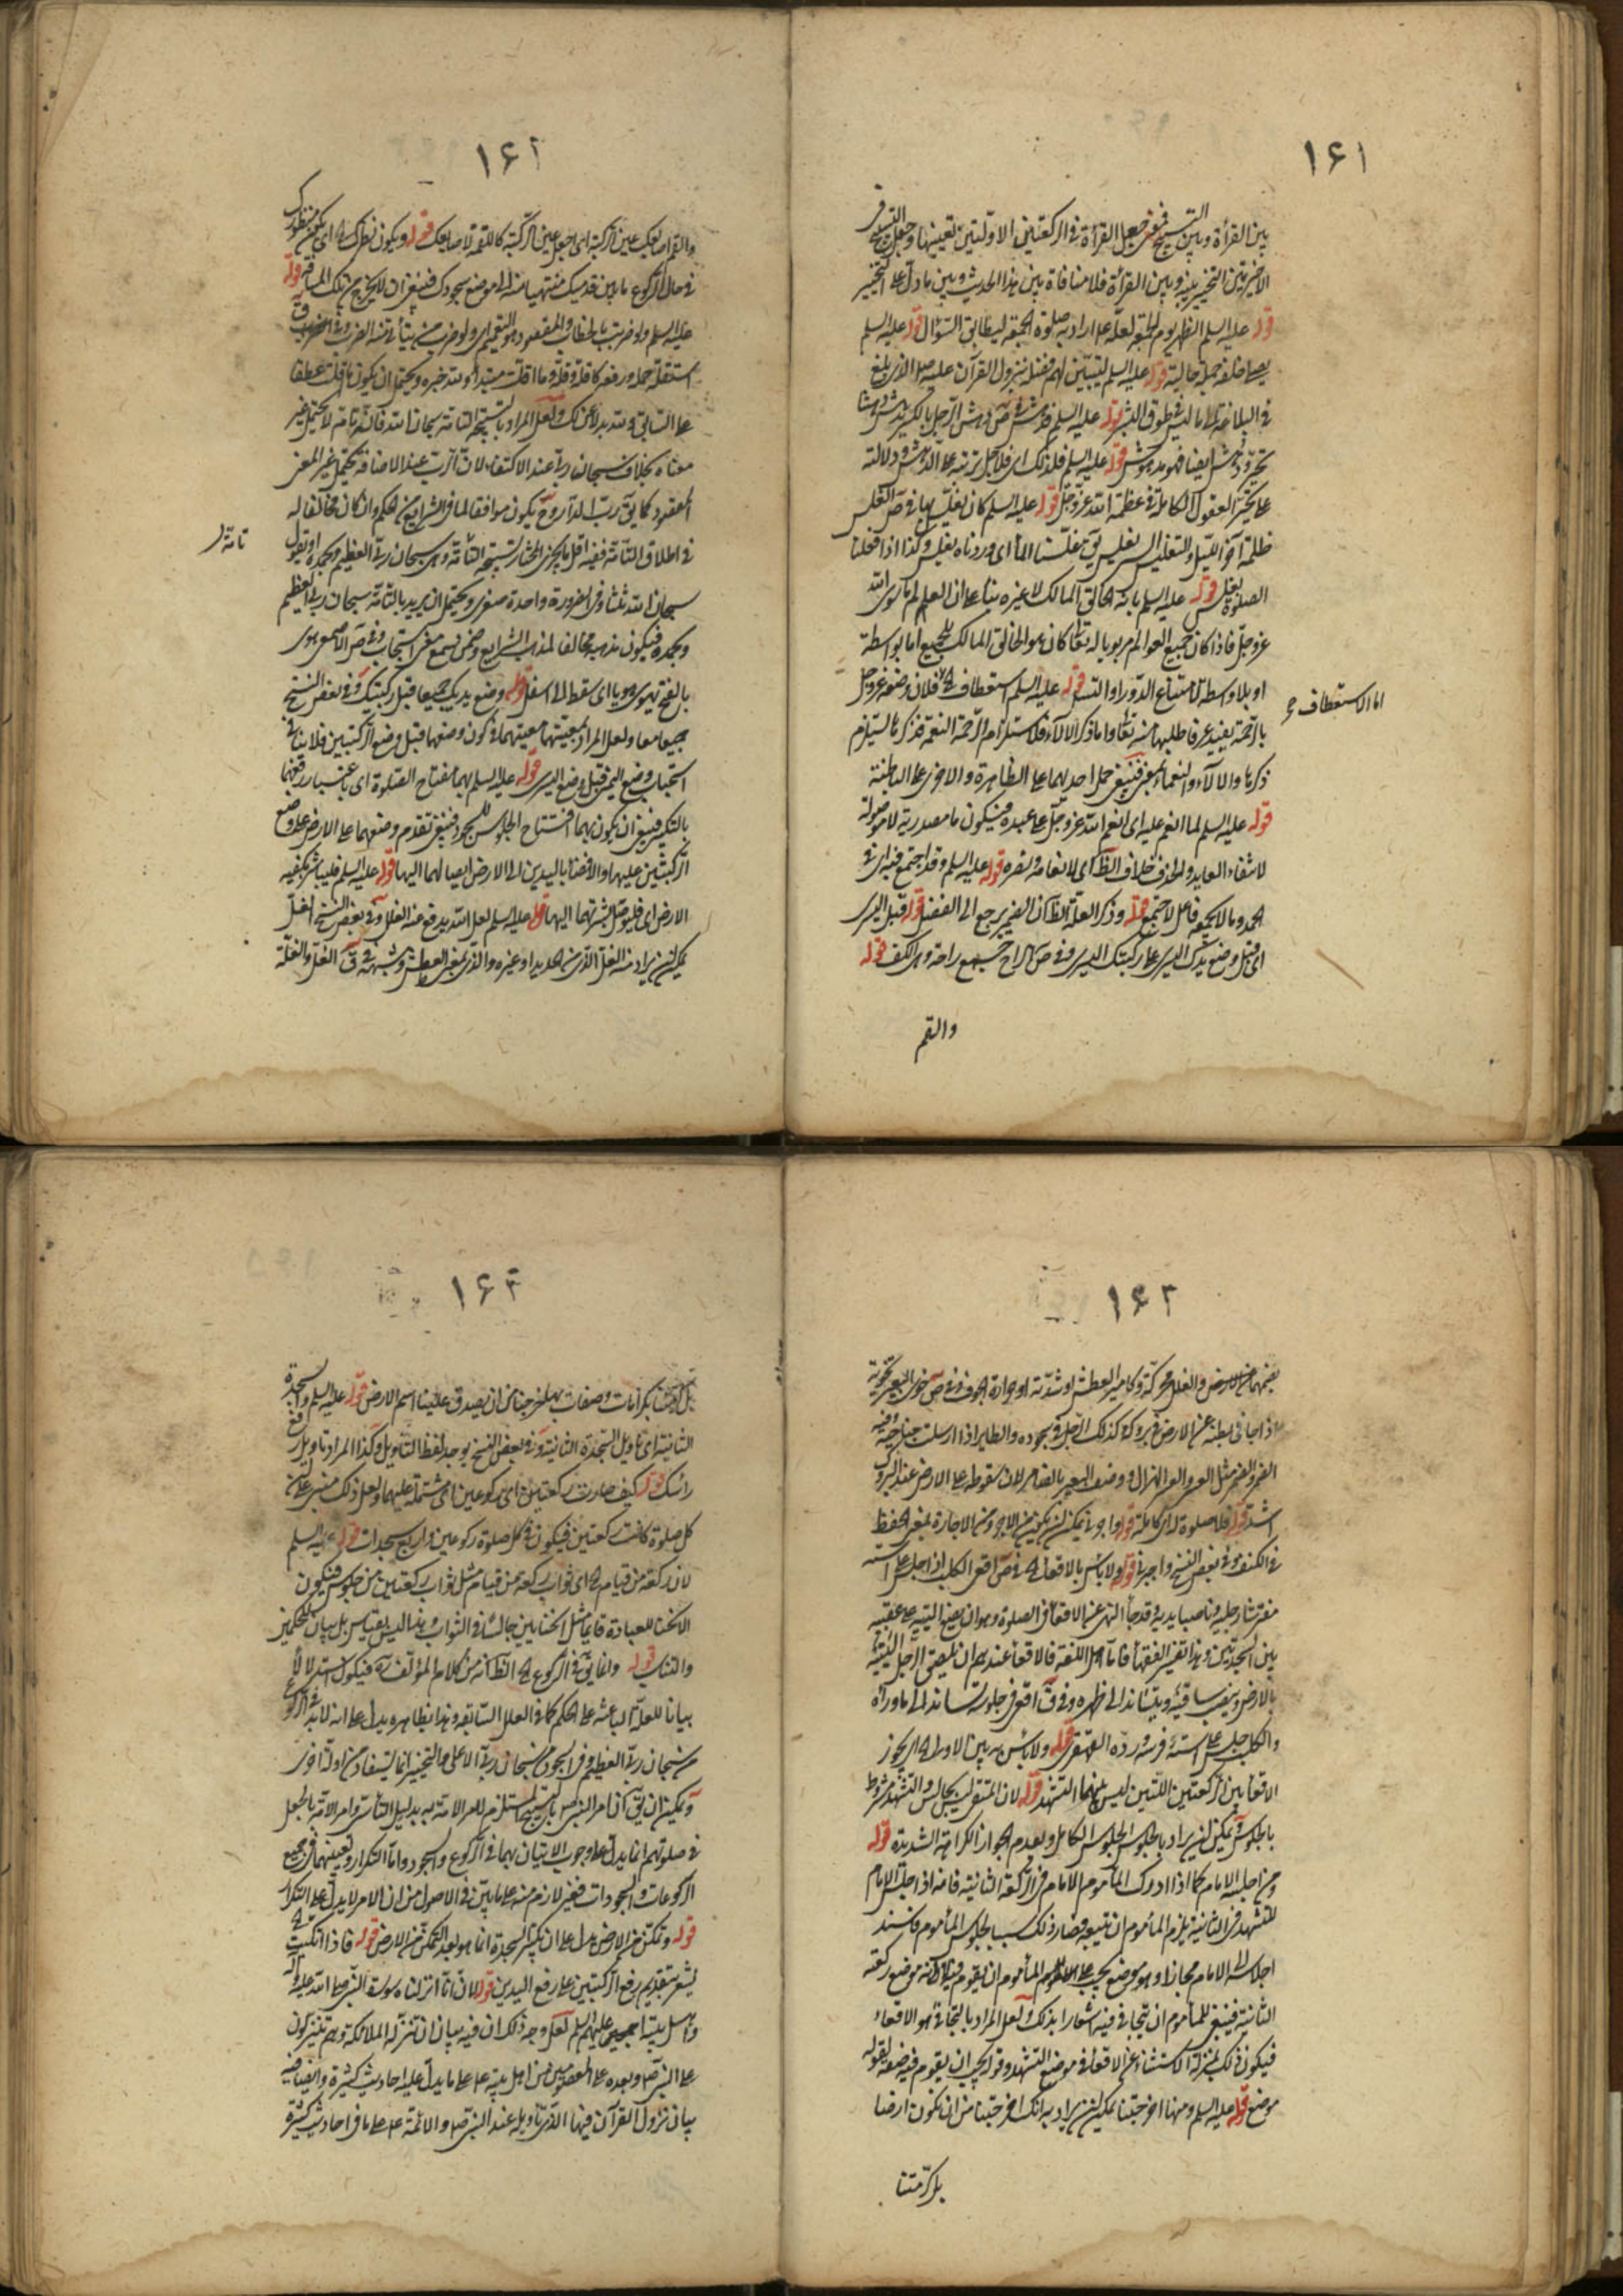 ١٤١
بين القرأة وبين التسبيح فمعنى جعل القرأة في الركعتين الاولتين تعيينها وجعل التسبيح في
الاخيرتين التخيير بينه وبين القرأة فلا منافاة بين هذا الحديث وبين ما دل على التخيير
قوله عليه السلم الظهر يوم الجمعة لعله اراد به صلوة الجمعة ليطابق السؤال قوله عليه السلم
يصلى خلفه جملة حالية قوله عليه السلم ليتبين لهم فضله نزول القرآن عليه صلى الذي بلغ
في البلاغة الى ما ليس في طوق البشر قوله عليه السلم فدهش في ص دهش الرجل بالكسر يدهش دهشا
تحير ودهش ايضا فهو مدهوش قوله عليه السلم فلذلك اى فلاجل ترتبه على الدهش ودلالته
على تحير العقول الكاملة في عظمة الله عز وجل قوله عليه السلم كان يغلس بها في ص الغلس
ظلمة آخر الليل والتغليس السير بغلس يق غلسنا الماء اى وردناه بغلس وكذا اذا فعلنا
الصلوة بغلس قوله عليه السلم بانه الخالق المالك لا غيره بناء على ان العالم لما سوى الله
عز وجل فاذا كان جميع العوالم مربوبا له تعالى كان هو الخالق المالك للجميع اما بواسطة
او بلا واسطة لامتناع الدور او التسلسل قوله عليه السلم استعطاف الخ فلان وصفه عز وجل
اما الاستعطاف
بالرحمة يفيد عرفا طلبها منه تعالى واما ذكر الآلاء فلاستلزام الرحمة النعمة فذكرها يستلزم
ذكرها والآلاء والنعماء بمعنى فينبغى حمل احديهما على الظاهرة والاخرى على الباطنة
قوله عليه السلم لما انعم عليه اى انعم الله عز وجل على عبده فيكون ما مصدرية لا موصولة
لانتفاء العايد والحذف خلاف الظ اى لانعامه ونصره قوله عليه السلم وقد اجتمع فيه اى في
الحمد وما لا يجمعه فاعل لا جتمع قوله وذكر العلة الظ ان الضمير يرجع الى الفضل قوله قبل اليسرى
اى قبل وضع يدك اليسرى على ركبتك اليسرى وفي ص الراح جمع راحة وهى الكف قوله
والقم
١٤٢
والقم اصابعك عين الركبة اى اجعل عين الركبة كاللقمة لاصابعك قوله ويكون نظرك الخ اى يكون منظورك
في حال الركوع ما بين قدميك منتهيا منه الى موضع سجودك فينبغى ان لا يخرج من تلك المسافة قوله
عليه السلم ولو ضربت بالخطاب والمقصود هو التعميم اى ولو ضرب من يتأتى منه الضرب
استقلته جملة ورفعه كما قلته وقلته وما اقلت مبتدأ ولله خبره ويحتمل ان يكون ما اقلت عطفا
على السابق ولله بدلا عن لك ولعل المراد بالتسبيحة التامة سبحان الله فانه تامة لا يحتمل غير
معناه بخلاف سبحان ربى عند الاكتفاء لان الرب عند الاضافة يحتمل غير المعنى
المقصود كما يق رب الدار وح يكون موافقا لما في الشرايع من الحكم وان كان مخالفا له
في اطلاق التامة ففيه اقل ما يجزى المختار تسبيحة التامة وهى سبحان ربى العظيم وبحمده او يقول
تامة
سبحان الله ثلثا وفى الضرورة واحدة صغرى ويحتمل ان يريد بالتامة سبحان ربى العظيم
وبحمده فيكون مذهبه مخالفا لمذهب الشرايع وضمن سمع معنى استجاب وفي ص الاصمعى هوى
بالفتح يهوى هويا اى سقط الى اسفل قوله وضع يديك جميعا قبل ركبتيك وفي بعض النسخ
جميعا معا ولعل المراد بمعيتهما معيتهما في كون وضعهما قبل وضع الركبتين فلا ينافى
استحباب وضع اليمنى قبل وضع اليسرى قوله عليه السلم بهما مفتاح الصلوة اى باعتبار رفعهما
بالتكبير فينبغى ان يكون بهما افتتاح الجلوس للسجود فينبغى تقدم وضعهما على الارض على وضع
الركبتين عليها والافضاء باليدين الى الارض ايصالهما اليها قوله عليه السلم فليباشر بكفيه
الارض اى فليوصل بشرتهما اليها قوله عليه السلم لعل الله يدفع عنه الغل وفي بعض النسخ الغل
يمكن ان يراد منه الغل الذى من الحديد او غيره والذى بمعنى العطش وشبهه في ق الغل والغلة
١٤٣
بضمهما على الارض والغلل محركة وكامير العطش او شدته او حرارة الجوف وفي ص خوى البعير تخوية
اذا جافى بطنه عن الارض في بروكه وكذلك الرجل في سجوده والطاير اذا ارسلت جناحيه وفيه
الضمر والضمر مثل العسر والعسر الهزال ووصف البعير بالضامر لان سقوطه على الارض عند البروك
اشد قوله فلا صلوة له اى كاملة قوله واجرنى يمكن ان يكون من الاجر ومن الاجارة بمعنى الحفظ
في الكنف وفي بعض النسخ واجبرنى قوله ولا بأس بالاقعاء الخ في ص اقعى الكلب اذا جلس على استه
مفترشا رجليه وناصبا يديه وقد جاء النهى عن الاقعاء في الصلوة وهو ان يضع اليتيه على عقبيه
بين السجدتين وهذا تفسير الفقهاء فاما اهل اللغة فالاقعاء عندهم ان يلصق الرجل اليتيه
بالارض وينصب ساقيه ويتساند الى ظهره وفي ق اقعى في جلوسه تساند الى ما وراءه
والكلب جلس على استه وفرسه رده القهقرى قوله ولا بأس به بين الاولى الخ اى يجوز
الاقعاء بين الركعتين اللتين ليس بينهما التشهد قوله لان المقعى ليس بجالس والتشهد مشروط
بالجلوس ويمكن ان يراد بالجلوس الجلوس الكامل وبعدم الجواز الكراهة الشديدة قوله
ومن اجلسه الامام كما اذا ادرك المأموم الامام في الركعة الثانية فانه اذا جلس الامام
للتشهد في الثانية يلزم المأموم ان يتبعه فصار ذلك سببا لجلوس المأموم فاسند
اجلاسه الى الامام مجازا وهو موضع يجب على المأموم ان يقوم فيه لانه موضع ركعته
الثانية فينبغى للمأموم ان يتجافى فيه اشعارا بذلك ولعل المراد بالتجافى هو الاقعاء
فيكون ذلك بمنزلة الاستثناء عن الاقعاء في موضع التشهد وقوله يجب ان يقوم فيه صفة لقوله
موضع قوله عليه السلم ومنها اخرجتنا يمكن ان يراد به انك اخرجتنا من ان نكون ارضا
بل كرمتنا
١٤٣
بكرامات وصفات بها خرجنا من ان يصدق علينا اسم الارض قوله عليه السلم والسجدة
الثانية اى تأويل السجدة الثانية وفي بعض النسخ يوجد لفظ التأويل وكذا المراد تأويل رفع
رأسك قوله كيف صارت ركعتين اى ركوعين اى مشتملة عليهما ولعل ذلك مبنى على ان
كل صلوة كانت ركعتين فيكون في كل صلوة ركوعين واربع سجدات قوله عليه السلم
لان ركعة من قيام الخ اى ثواب ركعة من قيام مثل ثواب ركعتين من جلوس فيكون
الانحناء للعبادة قايما مثل انحنائين جالسا في الثواب وهذا ليس بقياس بل بيان للحكم
والتناسب قوله وانما يق في الركوع الخ الظ انه من كلام المؤلف ره فيكون استدلالا لا
بيانا للعلة الباعثة على الحكم كما في العلل السابقة وهذا بظاهره يدل على انه لا بد في الركوع
من سبحان ربى العظيم وفي السجود من سبحان ربى الاعلى والتخيير انما يستفاد من ادلة اخرى
ويمكن ان يق ان امر النبى ص بالتسبيح مستلزم لامر الامة به بدليل التأسى وامر الامة بالجعل
في صلوتهم انما يدل على وجوب الاتيان بهما في الركوع والسجود واما التكرار وتعيينهما في جميع
الركوعات والسجودات فغير لازم منه على ما بين في الاصول من ان الامر لا يدل على التكرار
قوله وتمكن من الارض يدل على ان تكبير السجدة انما هو بعد التمكن من الارض قوله فاذا اتكيت الخ
يشعر بتقديم رفع الركبتين على رفع اليدين قوله لان انا انزلناه سورة النبى صلى الله عليه وآله
واهل بيته اجمعين عليهم السلم لعل وجه ذلك ان فيه بيان ان تنزل الملائكة وهم ينزلون
على النبى ص وبعده على المعصومين من اهل بيته ع على ما يدل عليه احاديث كثيرة وايضا فيه
بيان نزول القرآن فيها الذى تأويله عند النبى ص والائمة ع على ما في احاديث كثيرة